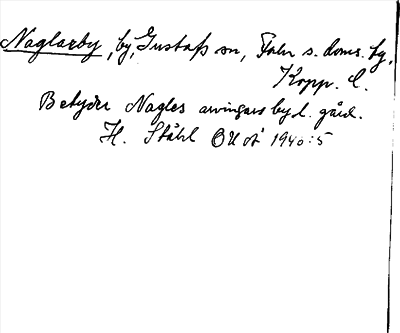 Naglarby, by, Gustafs sn, Falu s. doms. hg,
Kopp. l.
Betyder Nagles arvingars by l. gård.
H. Ståhl OUoÅ 1940:5